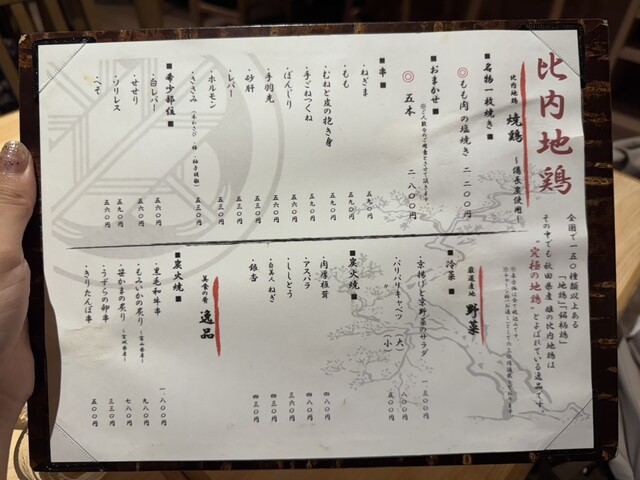 比内地鶏
全国で一五〇種類以上ある
「地鶏」「銘柄鶏」
その中でも秋田県産 雄の比内地鶏は
"究極の地鶏"とよばれている逸品です。
比内地鶏 焼鶏 ～備長炭使用～
■名物一枚焼き■
◎もも肉の塩焼き 二二〇〇円
■おまかせ■
◎五本 二八〇〇円
■串■
・ねぎま 五九〇円
・もも 五九〇円
・むねと皮の抱き身 五九〇円
・手ごねつくね 五九〇円
・ぼんじり 五六〇円
・手羽先 五六〇円
・砂肝 五三〇円
・レバー 五三〇円
・ホルモン 五六〇円
・ささみ 五三〇円
■希少部位■
・白レバー 五六〇円
・せせり 五九〇円
・ソリレス 五九〇円
・へそ 五六〇円
厳選産地 野菜
■冷菜■
・京揚げと京野菜のサラダ 一三〇〇円
・パリパリキャベツ(大) 八〇〇円
〃 (小) 五〇〇円
■炭火焼■
・肉厚椎茸 四八〇円
・アスパラ 四八〇円
・ししとう 三六〇円
・白美人ねぎ 四三〇円
・銀杏 四三〇円
美食の肴 逸品
■炭火焼■
・黒毛和牛串 一八〇〇円
・もみいかの炙り～富山県産～ 九八〇円
・笹かまの炙り～宮城県産～ 七八〇円
・うずらの卵串 三三〇円
・きりたんぽ串 五〇〇円